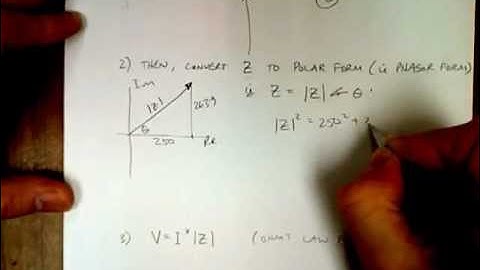 2) THEN, CONVERT Z TO POLAR FORM (ie PHASOR FORM)
Im
ie Z = |Z| ∠ θ .
|Z|
263.9
θ
250
Re
|Z|² = 250² + 2
3) V = I * |Z| (OHM'S LAW